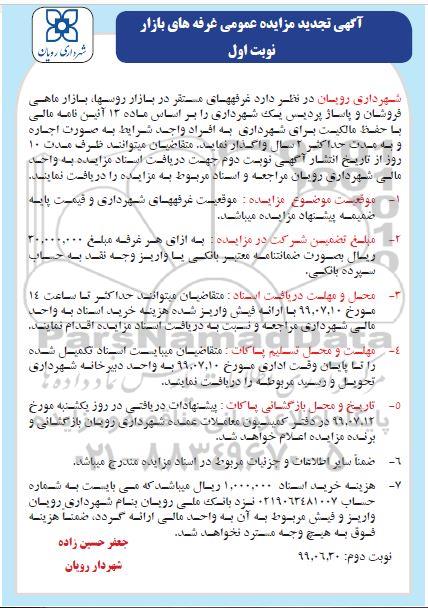 آگهی تجدید مزایده عمومی غرفه های بازار
نوبت اول
شهرداری رویان
شهرداری رویان در نظر دارد غرفههای مستقر در بازار روسها، بازار ماهی
فروشان و پاساژ پردیس یک شهرداری را بر اساس ماده ۱۳ آئین نامه مالی
با حفظ مالکیت برای شهرداری به افراد واجد شرایط به صورت اجاره
و به مدت حداکثر ۱ سال واگذار نماید. متقاضیان میتوانند ظرف مدت ۱۰
روز از تاریخ انتشار آگهی نوبت دوم جهت دریافت اسناد مزایده به واحد
مالی شهرداری رویان مراجعه و اسناد مربوط به مزایده را دریافت نمایند.
۱- موقعیت موضوع مزایده : موقعیت غرفههای شهرداری و قیمت پایه
ضمیمه پیشنهاد مزایده میباشد.
۲- مبلغ تضمین شرکت در مزایده : به ازای هر غرفه مبلغ ۳۰,۰۰۰,۰۰۰
ریال بصورت ضمانتنامه معتبر بانکی یا واریز وجه نقد به حساب
سپرده بانکی.
۳- محل و مهلت دریافت اسناد : متقاضیان میتوانند حداکثر تا ساعت ۱۴
مورخ ۹۹,۰۷,۱۰ با ارائه فیش واریز شده هزینه خرید اسناد به واحد
مالی شهرداری مراجعه و نسبت به دریافت اسناد مزایده اقدام نمایند.
۴- مهلت و محل تسلیم پاکات : متقاضیان میبایست اسناد تکمیل شده
را تا پایان وقت اداری مورخ ۹۹,۰۷,۱۰ به واحد دبیرخانه شهرداری
تحویل و رسید مربوطه را دریافت نمایند.
۵- تاریخ و محل بازگشائی پاکات : پیشنهادات دریافتی در روز یکشنبه مورخ
۹۹,۰۷,۱۳ در دفتر کمیسیون معاملات عمده شهرداری رویان بازگشائی و
برنده مزایده اعلام خواهد شد.
۶- ضمناً سایر اطلاعات و جزئیات مربوط در اسناد مزایده مندرج میباشد.
۷- هزینه خرید اسناد ۱,۰۰۰,۰۰۰ ریال میباشدکه می بایست به شماره
حساب ۰۲۱۹۰۶۳۴۸۱۰۰۷ نزد بانک ملی رویان بنام شهرداری رویان
واریز و فیش مربوط به آن به واحد مالی ارائه گردد، ضمنا هزینه
فوق به هیچ وجه مسترد نخواهد شد.
نوبت دوم: ۹۹,۰۶,۳۰
جعفر حسین زاده
شهردار رویان
ParsNamadData
۰۲۱-۸۸۳۴۹۶۷۰-۵